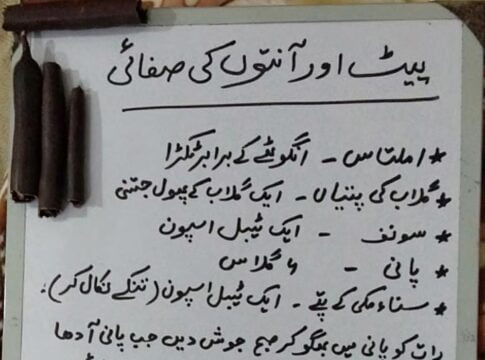 پیٹ اور آنتوں کی صفائی
* املتاس - انگوٹھے کے برابر ٹکڑا
* گلاب کی پتیاں - ایک گلاب کے پھول جتنی
* سونف - ایک ٹیبل اسپون
* پانی - ۶ گلاس
* سناء مکی کے پتے - ایک ٹیبل اسپون (تنکے نکال کر).
رات کو پانی میں بھگو کر صبح جوش دیں جب پانی آدھا